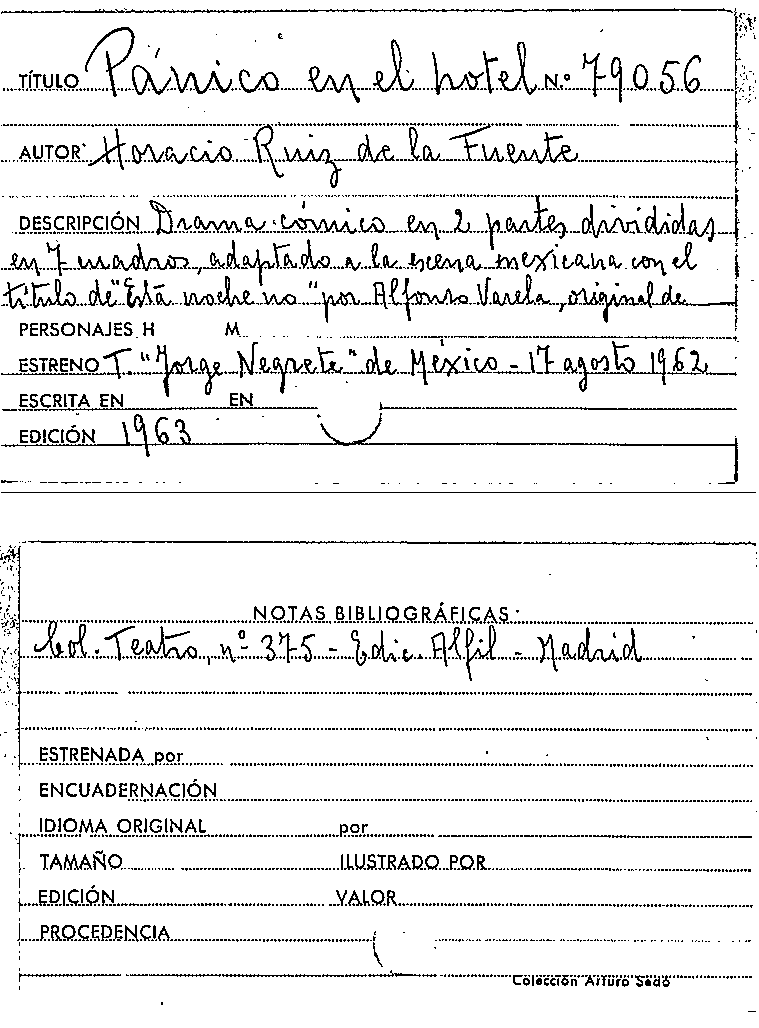 TÍTULO Pánico en el hotel N.º 79056
AUTOR Horacio Ruiz de la Fuente
DESCRIPCIÓN Drama cómico en 2 partes divididas
en 7 cuadros, adaptado a la escena mexicana con el
título de "Está noche no" por Alfonso Varela, original de
PERSONAJES H M
ESTRENO T. "Jorge Negrete" de México - 17 agosto 1962
ESCRITA EN EN
EDICIÓN 1963
NOTAS BIBLIOGRÁFICAS
Col. Teatro, nº 375 - Edic. Alfil - Madrid
ESTRENADA por
ENCUADERNACIÓN
IDIOMA ORIGINAL por
TAMAÑO ILUSTRADO POR
EDICIÓN VALOR
PROCEDENCIA
Colección Arturo Sedó